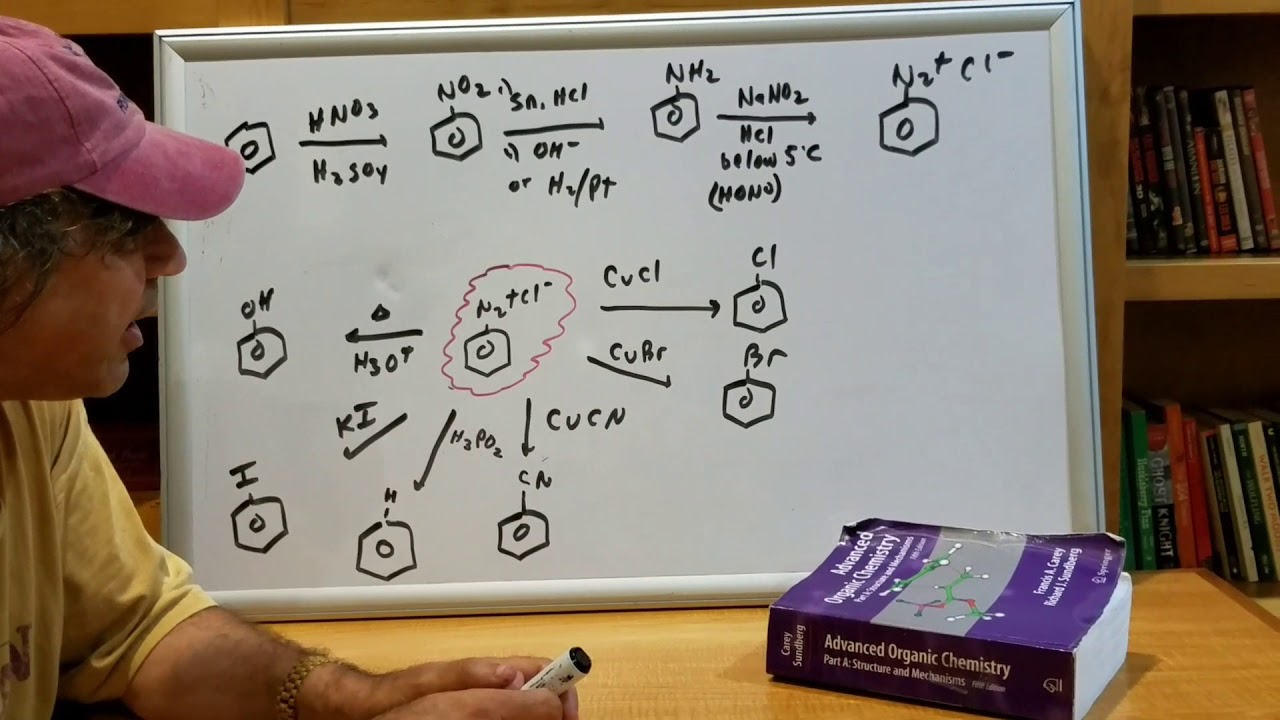 HNO3
H2SO4
NO2
1) Sn, HCl
2) OH-
or H2/Pt
NH2
NaNO2
HCl
below 5°C
(HONO)
N2+ Cl-
OH
Δ
H3O+
N2+Cl-
CuCl
Cl
CuBr
Br
KI
I
H3PO2
H
CuCN
CN
Advanced
Organic Chemistry
Part A: Structure and Mechanisms
Fifth Edition
Francis A. Carey
Richard J. Sundberg
Springer
Carey
Sundberg
Advanced Organic Chemistry
Part A: Structure and Mechanisms
Fifth Edition
GHOST KNIGHT
Huckleberry Finn